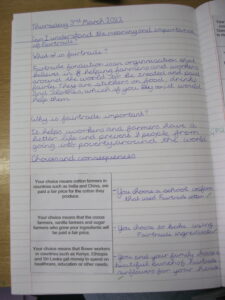 Thursday 3rd March 2022
Can I understand the meaning and importance
of Fairtrade?
What is fairtrade?
Fairtrade fondation is an organisation that
believes in helping farmers and workers
around the world to be treated and paid
fairly. They are stickers on food, drinks
and clothes, which if you buy could would
help them.
Why is fairtrade important?
It helps workers and farmers have a
better life and prevents people from
going into poverty around the world.
Choices and consequences
Your choice means cotton farmers in
countries such as India and China, are
paid a fair price for the cotton they
produce.
You choose a school uniform
that used Fairtrade cotton
Your choice means that the cocoa
farmers, vanilla farmers and sugar
farmers who grew your ingredients will
be paid a fair price.
You choose to bake using
Fairtrade ingredients
Your choice means that flower workers
in countries such as Kenya, Ethiopia
and Sri Lanka get money to spend on
healthcare, education or other needs.
You and your family choose a
beautiful bunch of Fairtrade
sunflowers for your